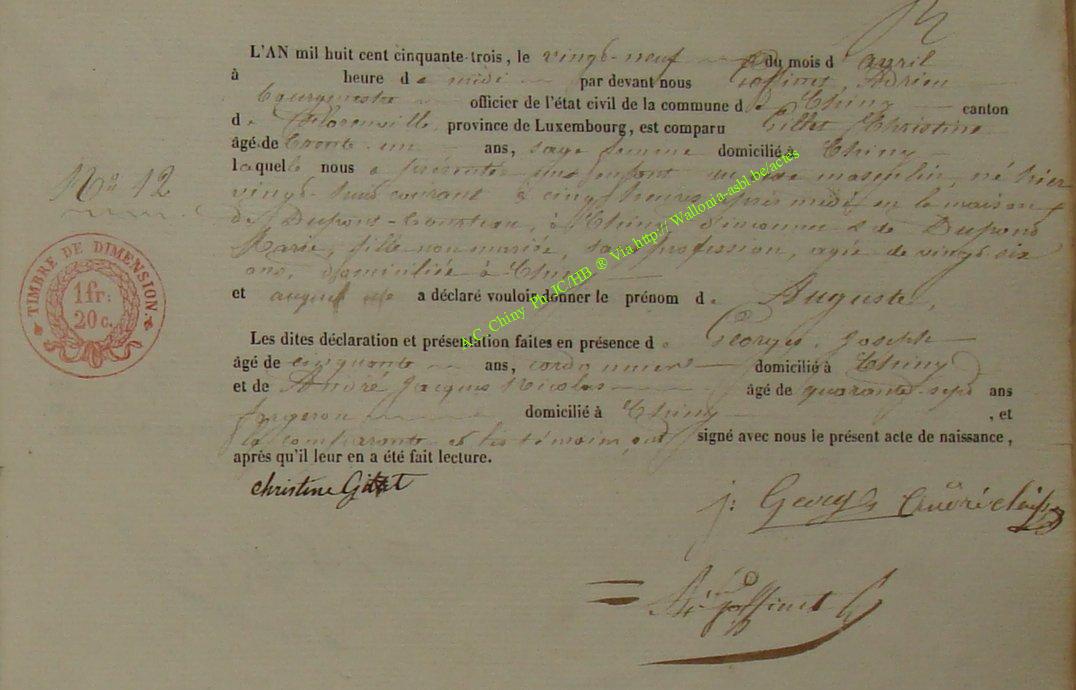 L'AN mil huit cent cinquante-trois, le vingt-neuf du mois d avril
à heure de midi par devant nous Goffinet, Adrien
bourgmestre officier de l'état civil de la commune de Chiny canton
de Florenville, province de Luxembourg, est comparu Gillet Christine
âgé de trente un ans, sage femme domicilié à Chiny
laquelle nous a présenté un enfant du sexe masculin, né hier
vingt huit courant à cinq heures après midi en la maison
de Dupont à Chiny, de Dupont
Marie, fille non mariée, sans profession, agée de vingt six
ans, domiciliée à Chiny
et auquel elle a déclaré vouloir donner le prénom d Auguste,
Les dites déclaration et présentation faites en présence de Georges, Joseph
âgé de cinquante ans, cordonnier domicilié à Chiny
et de André Jacques Nicolas âgé de quarante sept ans
forgeron domicilié à Chiny, et
la comparante et les témoins ont signé avec nous le présent acte de naissance,
après qu'il leur en a été fait lecture.
No 12
TIMBRE DE DIMENSION.
1 fr:
20 c.
A.C. Chiny Ph. JC/HB ® Via http:// Wallonia-asbl.be/actes
christine Gillet
j: Georges André
Goffinet